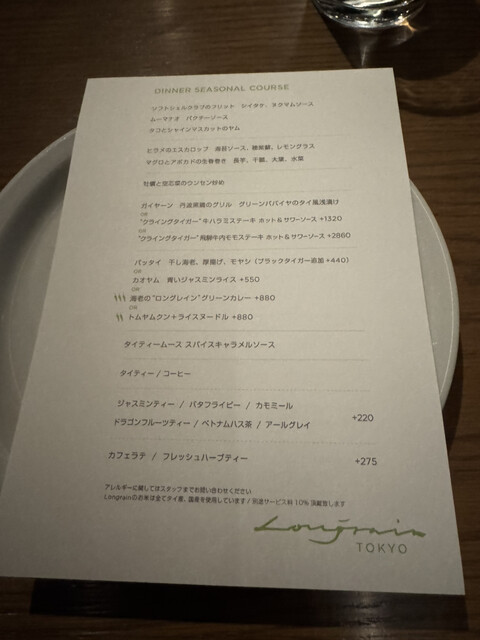 DINNER SEASONAL COURSE
ソフトシェルクラブのフリット　シイタケ、ネクマムソース
ムーマナオ　パクチーソース
タコとシャインマスカットのヤム
ヒラメのエスカロップ　海苔ソース、レモングラス
マグロとアボカドの生春巻き　長芋、干鰕、大葉、水菜
牡蠣と空芯菜のウンセン炒め
ガイヤーン　丹波黒鶏のグリル　グリーンパパイヤのタイ風浅漬け
OR
"クライングタイガー" 牛ハラミステーキ ホット＆サワーソース +1320
OR
"クライングタイガー" 飛騨牛内モモステーキ ホット＆サワーソース +2860
パッタイ　干し海老、厚揚げ、モヤシ（ブラックタイガー追加 +440）
OR
カオヤム　青いジャスミンライス +550
OR
海老の "ロングレイン" グリーンカレー +880
OR
トムヤムクン＋ライスヌードル +880
タイティームース スパイスキャラメルソース
タイティー / コーヒー
ジャスミンティー / バタフライピー / カモミール
ドラゴンフルーツティー / ベトナムハス茶 / アールグレイ
+220
カフェラテ / フレッシュハーブティー
+275
アレルギーに関してはスタッフまでお問い合わせください
Longrainのお米は全てタイ産、国産を使用しています / 別途サービス料 10% 頂戴致します
Longrain
TOKYO